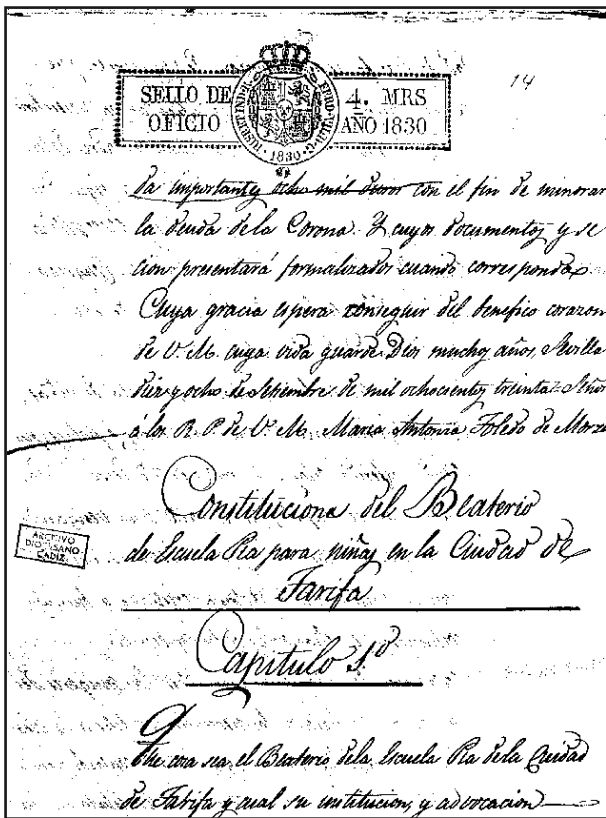 14
SELLO DE OFICIO
HISPET IND. R. FERD. VII. D. G.
1830
4. MRS
AÑO 1830
da importantes ocho mil duros con el fin de minorar
la deuda de la Corona. Y cuyos documentos y se
cion presentará formalizados cuando corresponda
Cuya gracia espera conseguir del benefico corazon
de V. M. cuya vida guarde Dios muchos años, Sevilla
diez y ocho de Setiembre de mil ochocientos treinta = Señor
á los R. P. de V. M. Maria Antonia Toledo de
Constituciones del Beaterio
de Escuela Pia para niñas en la Ciudad de
Tarifa
Capitulo 1º
ARCHIVO
DIOCESANO
CADIZ
Que cosa sea el Beaterio de la Escuela Pia de la Ciudad
de Tarifa y cual su institucion, y advocacion